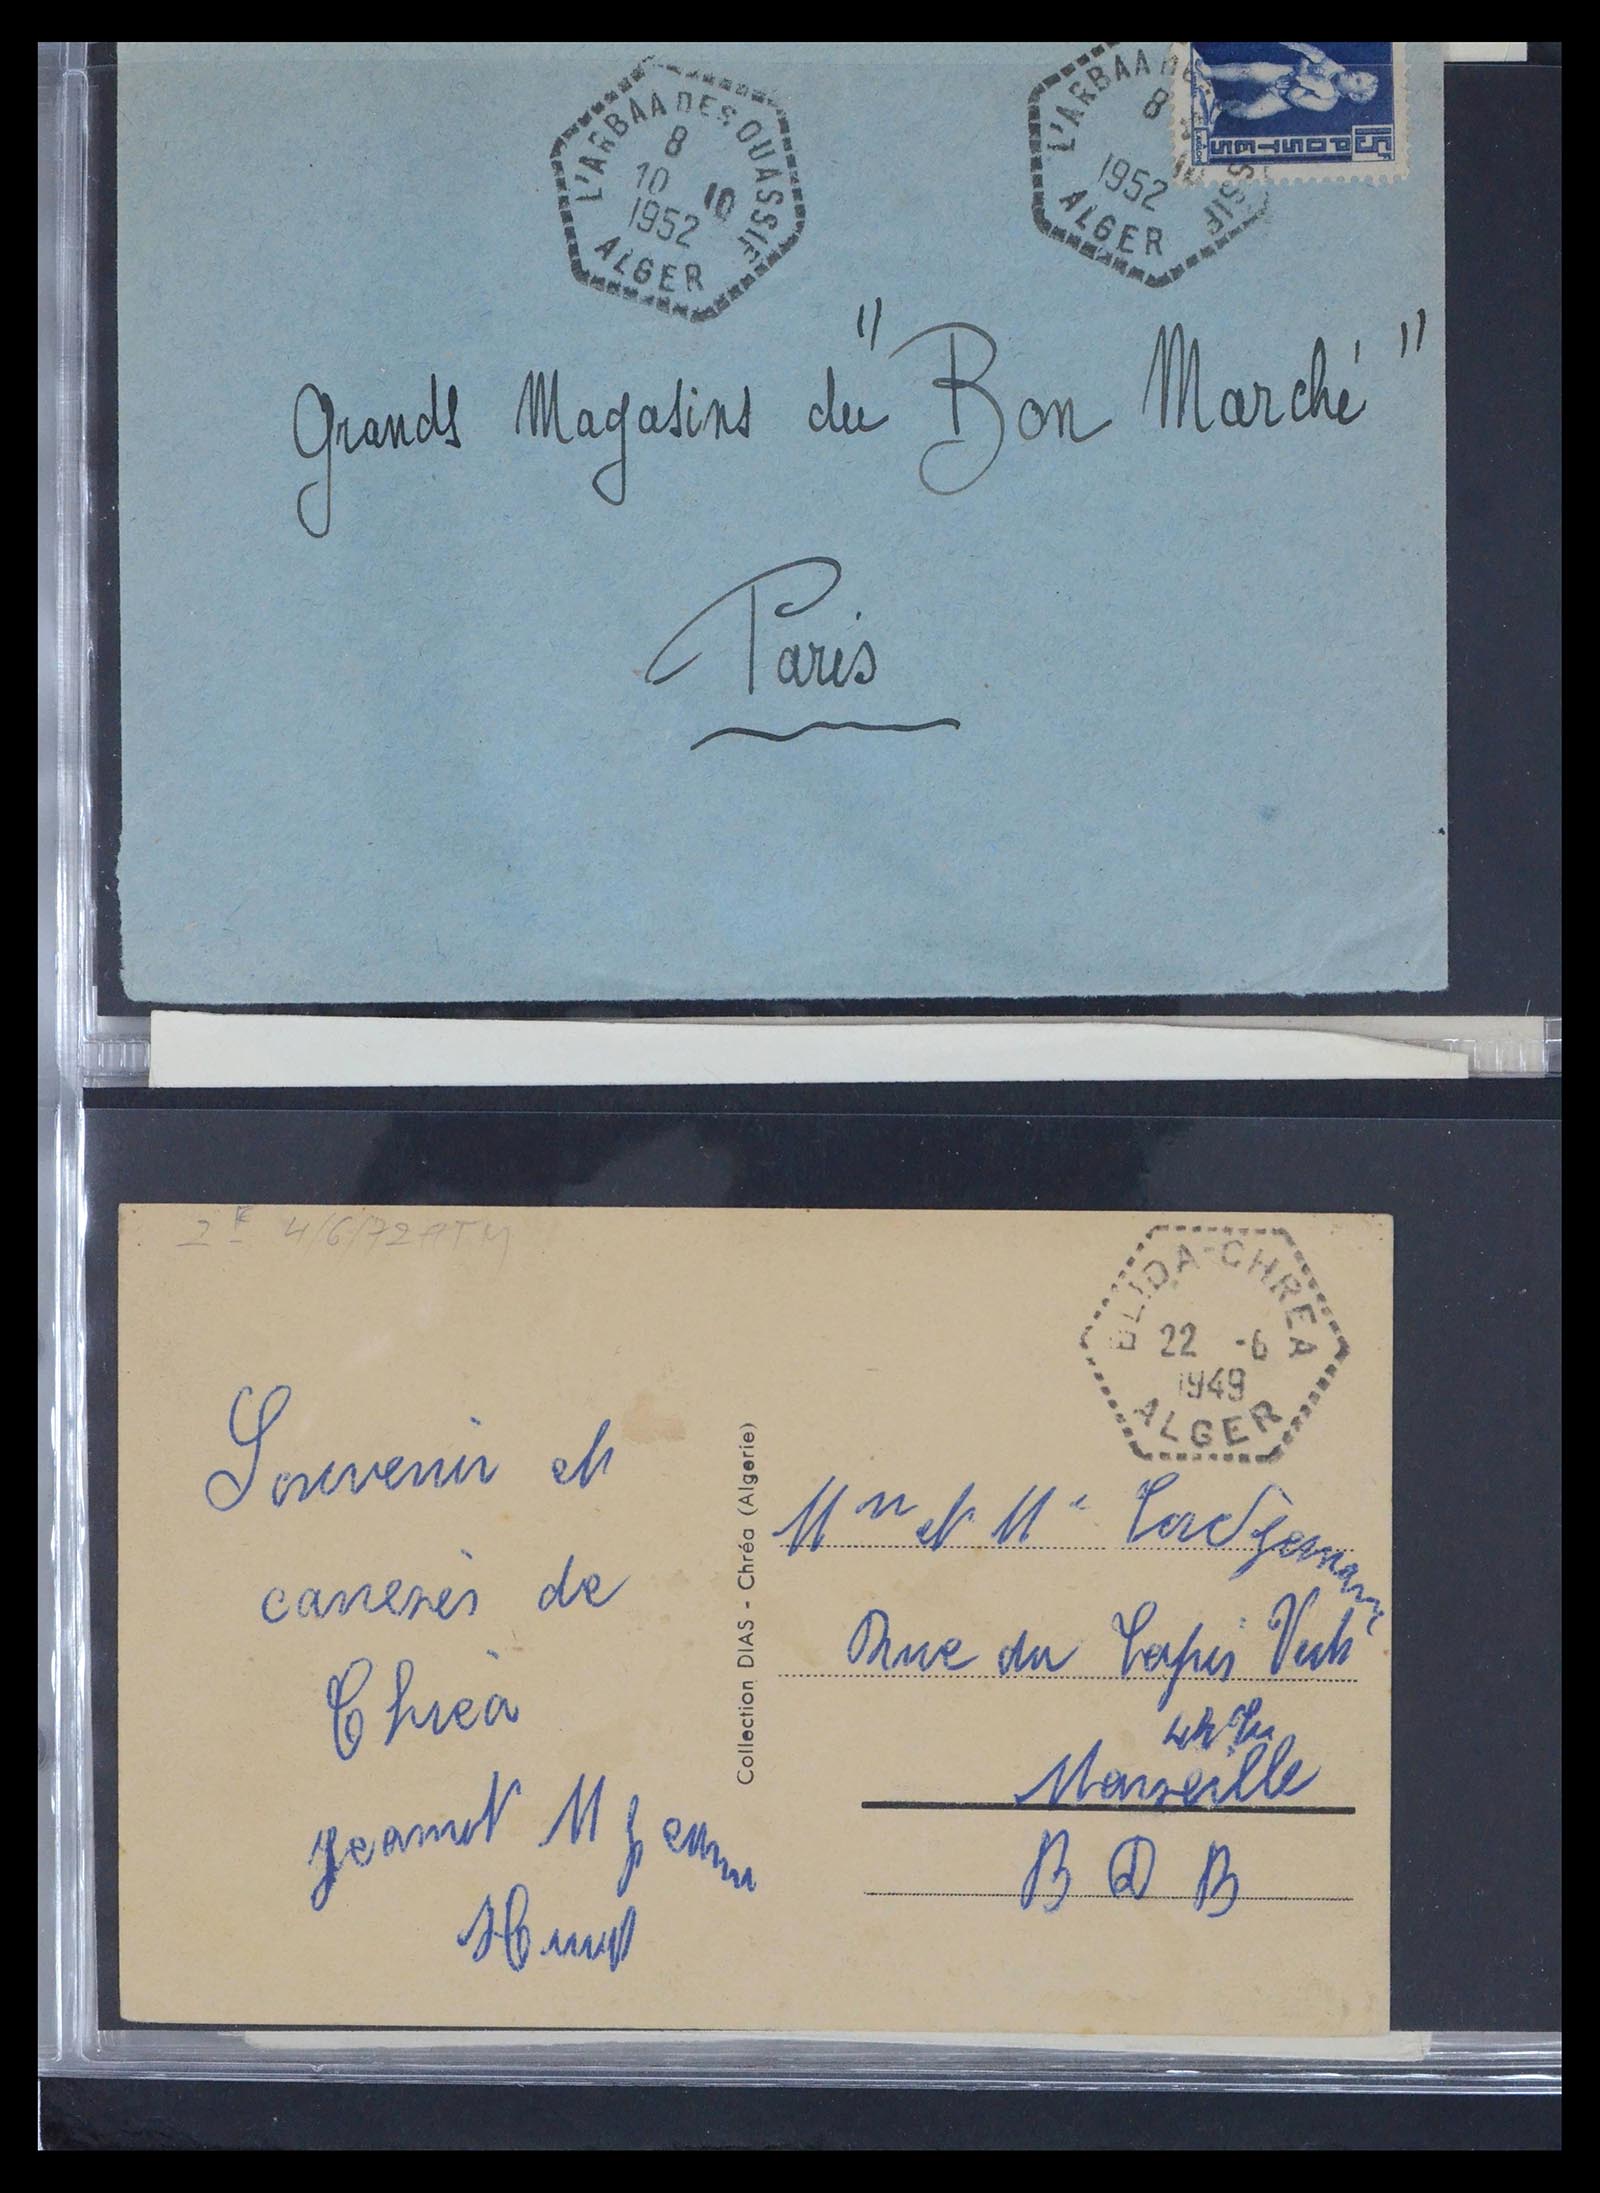 L'ARBAA DES OUASSIF
8
10 10
1952
ALGER
L'ARBAA DE SSIF
8
1952
ALGER
15F POSTES
Grands Magasins du "Bon Marché"
Paris
2E 4/6/72
BLIDA-CHREA
22 -6
1949
ALGER
Souvenir et
de
Chréa
Collection DIAS - Chréa (Algerie)
et
Rue du Tapis Vert
Marseille
B D R